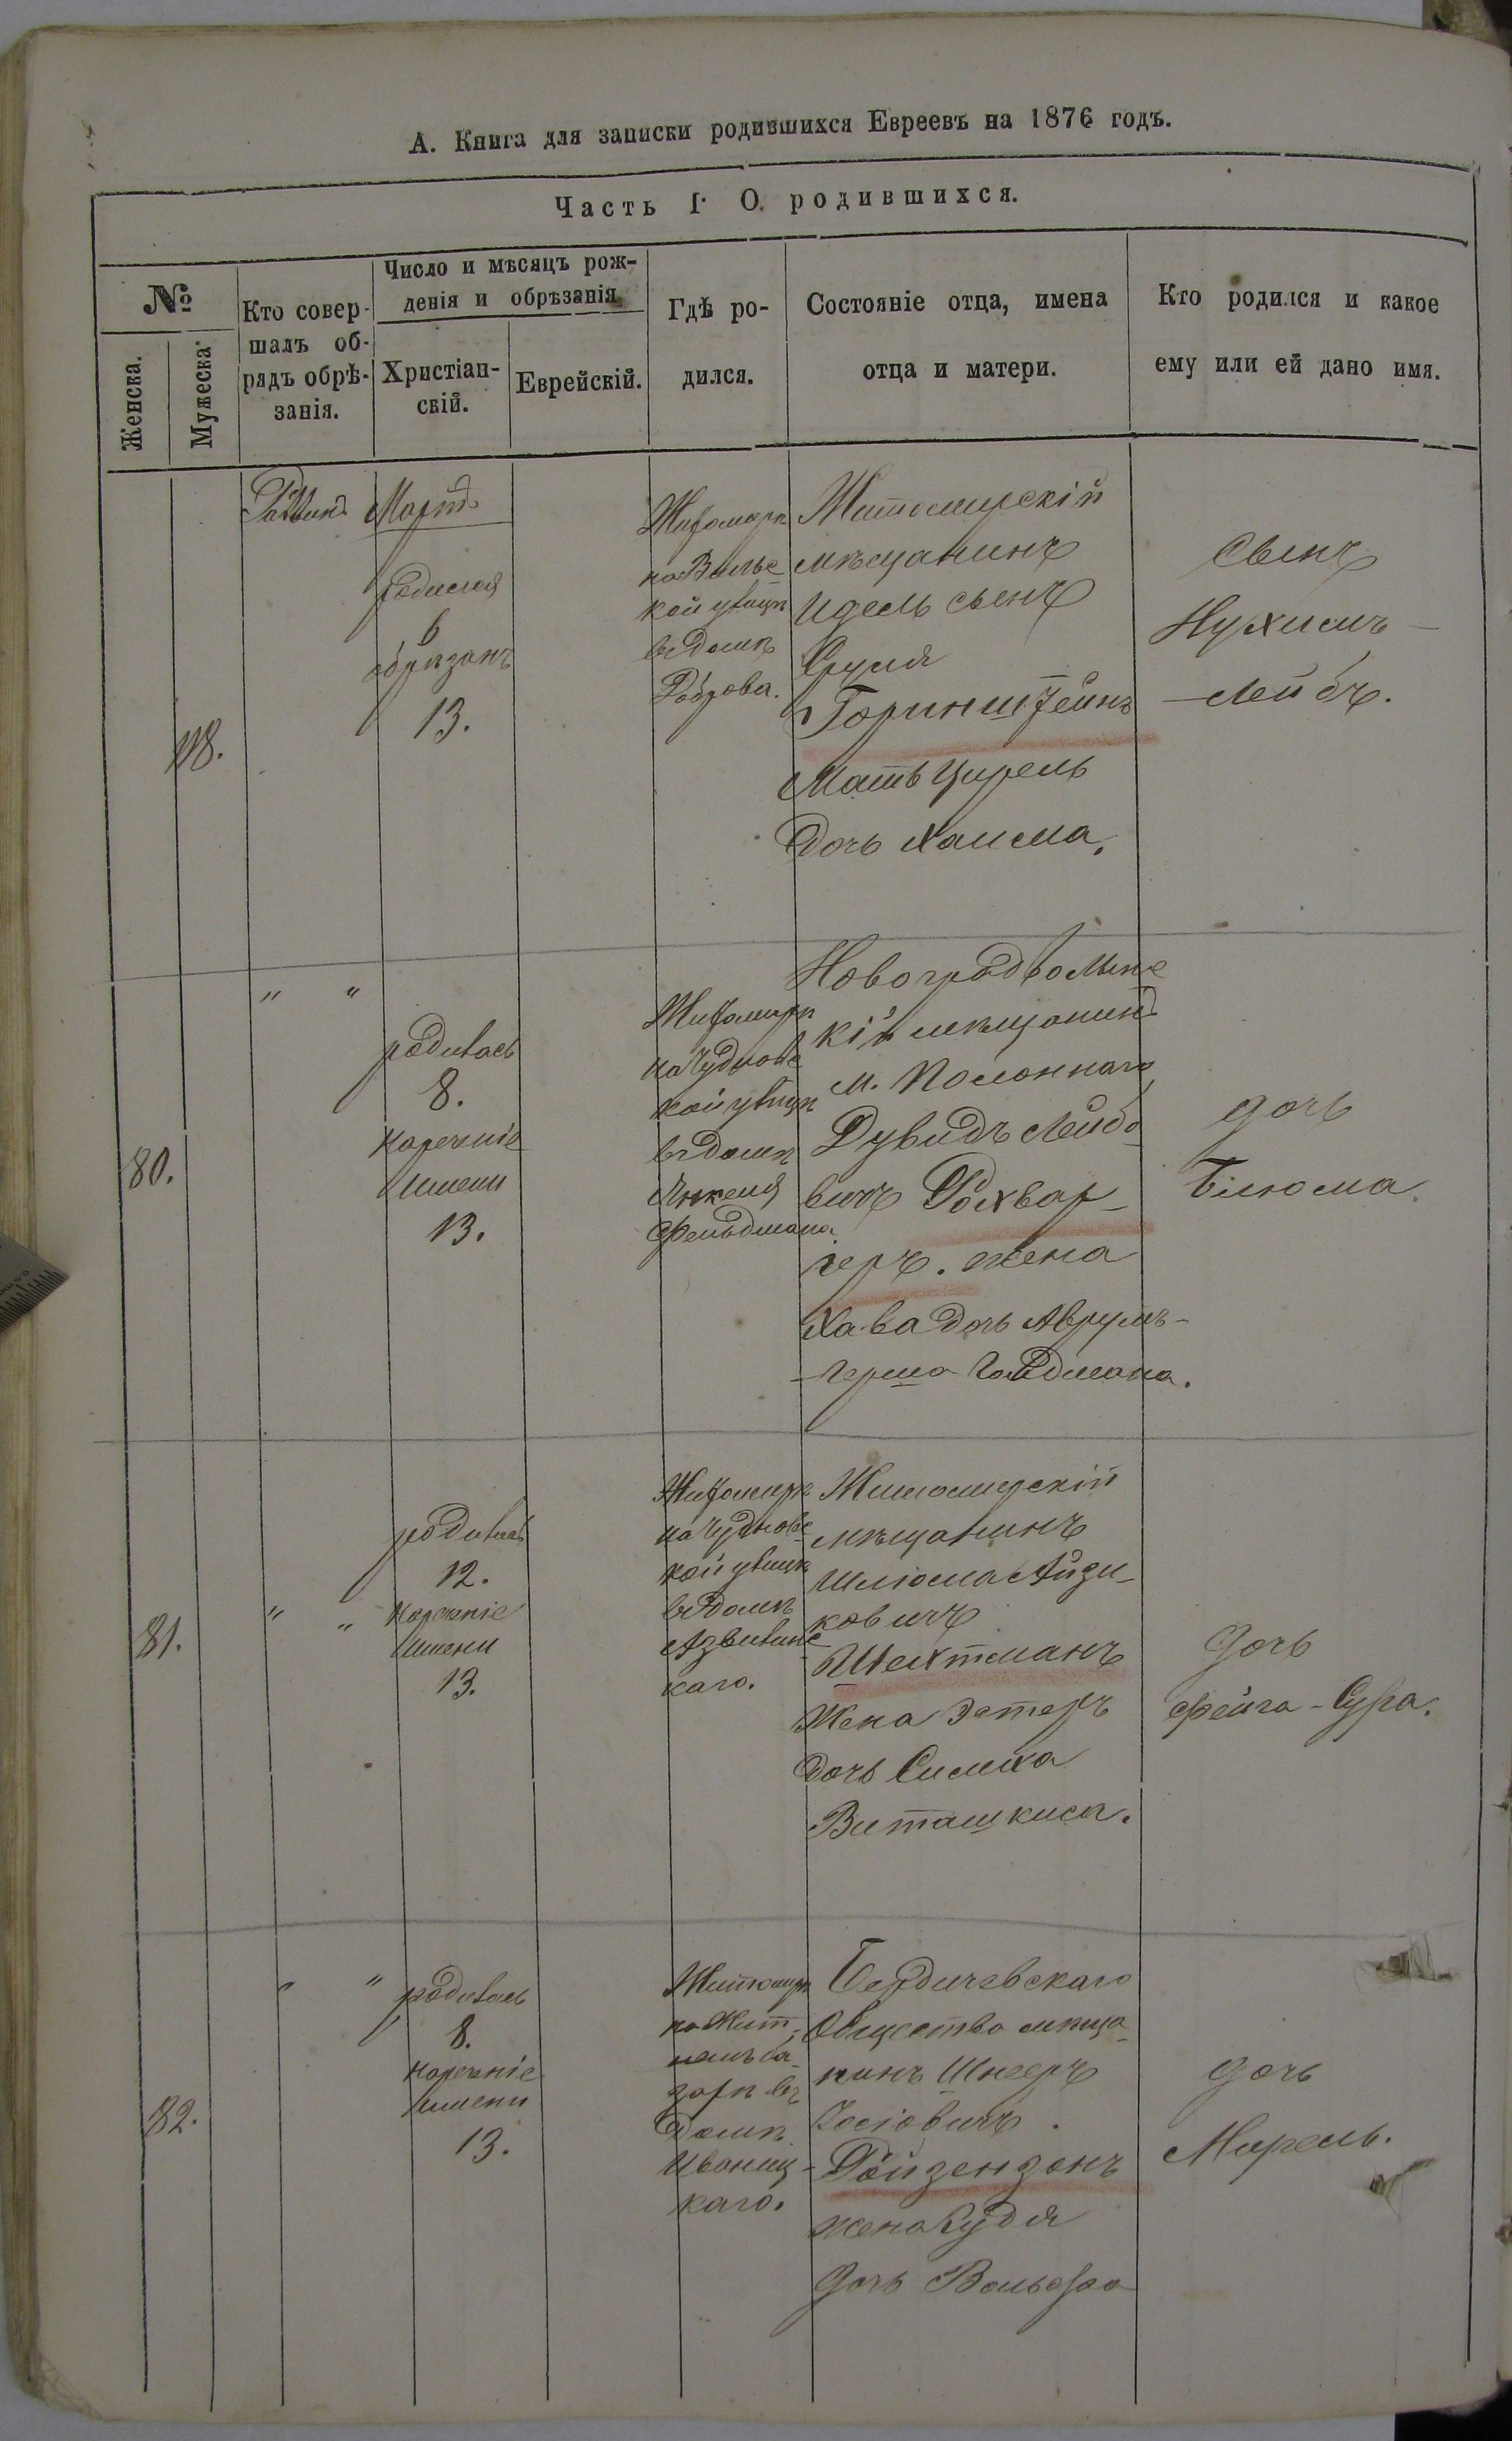 А. Книга для записки родившихся Евреевъ на 1876 годъ.
Часть I. О родившихся.
№
Женска.
Мужеска
Кто совер-
шалъ об-
рядъ обрѣ-
занія.
Число и мѣсяцъ рож-
денія и обрѣзанія
Христіан-
скій.
Еврейскій.
Гдѣ ро-
дился.
Состояніе отца, имена
отца и матери.
Кто родился и какое
ему или ей дано имя.
118.
Мартъ
родился
6
обрѣзанъ
13.
Житомирѣ
на Вильс
кой улицѣ
въ домѣ
Житомирскій
мѣщанинъ
Идель сынъ
Сруля
Горинштейнъ
Мать Цирель
Дочь Хаима.
Сынъ
Нухимъ –
– Лейбъ.
80.
" "
родилась
8.
нареченіе
имени
13.
Житомирѣ
на Чуднове
кой улицѣ
въ домѣ
Янкеля
Фельдмана
Новоградволынс
кій мѣщанинъ
м. Полоннаго
Дувидъ Лейбо
вичъ Рохвар-
геръ. жена
Хава дочь Аврумъ-
– Герша Гольдмана.
дочь
Блюма.
81.
" "
родилась
12.
нареченіе
имени
13.
Житомирѣ
на Чудновс
кой улицѣ
въ домѣ
каго.
Житомирскій
мѣщанинъ
Шлюма Айзи-
ковичъ
Шехтманъ
Жена Эстеръ
дочь Симха
Виташкиса.
Дочь
Фейга-Сура.
82.
" "
родилась
8.
нареченіе
имени
13.
Житомирѣ
на Жит-
немъ ба-
зарѣ въ
домѣ
Иваниц-
каго.
Бердичевскаго
Общества мѣща-
нинъ Шнееръ
Іосіовичъ.
Ройзензонъ
жена Судя
Дочь Вольфа
дочь
Мирель.